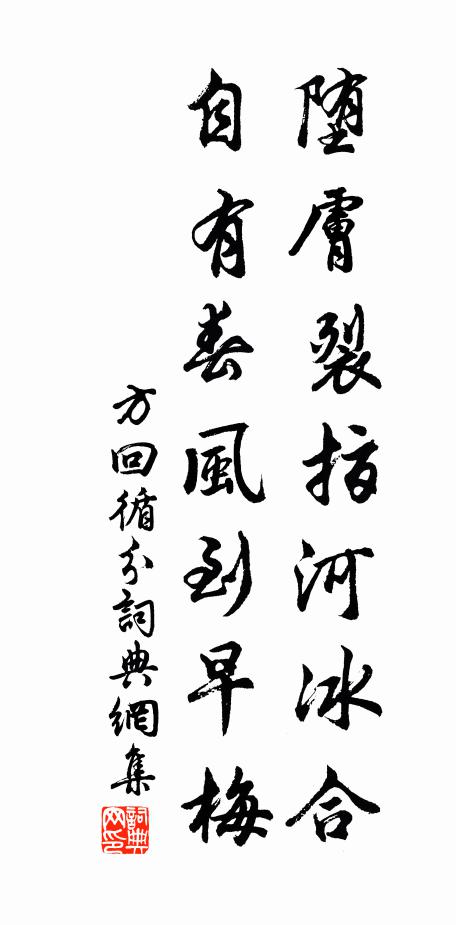 堕膚裂指河冰合
自有春風到早梅
方回循分詞典網集
詞典網印